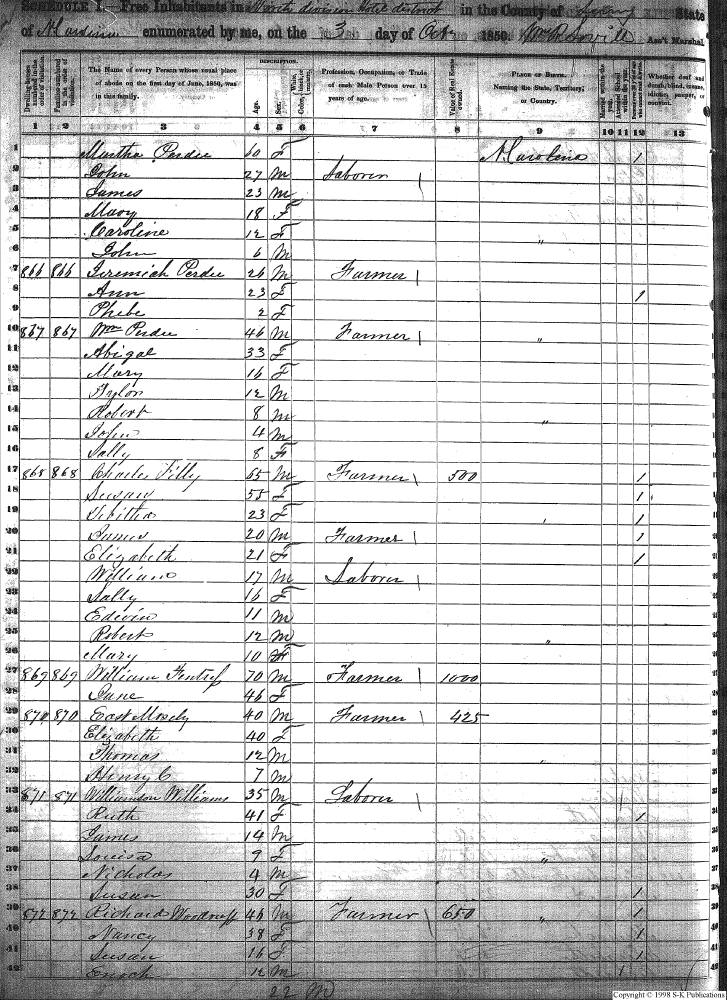 SCHEDULE I.—Free Inhabitants in North division in the County of Surry State
of N Carolina enumerated by me, on the 3 day of Oct 1850. Ass't Marshal
DESCRIPTION.
The Name of every Person whose usual place of abode on the first day of June, 1850, was in this family.
Age.
Sex.
Profession, Occupation, or Trade of each Male Person over 15 years of age.
Value of Real Estate owned.
PLACE OF BIRTH. Naming the State, Territory, or Country.
Whether deaf and dumb, blind, insane, idiotic, pauper, or convict.
1 2 3 4 5 6 7 8 9 10 11 12 13
1 Martha Pardue 60 F N Carolina 1
2 John 27 M Laborer
3 James 23 M
4 Mary 18 F
5 Caroline 12 F
6 John 6 M "
7 866 866 Jeremiah Perdue 26 M Farmer
8 Ann 23 F 1
9 Phebe 2 F
10 867 867 Wm Perdue 46 M Farmer "
11 Abigal 33 F
12 Mary 16 F
13 12 M
14 Robert 8 M "
15 John 4 M
16 Sally 8 F
17 868 868 Charles Tilly 65 M Farmer 500 1
18 Susan 55 F 1
19 Tibitha 23 F 1
20 James 20 M Farmer 1
21 Elizabeth 21 F 1
22 William 17 M Laborer
23 Sally 16 F
24 Edwin 11 M
25 Robert 12 M "
26 Mary 10 F
27 869 869 William Fentress 70 M Farmer 1000
28 Jane 46 F
29 870 870 East Mosely 40 M Farmer 425
30 Elizabeth 40 F
31 Thomas 12 M "
32 Henry C 7 M
33 871 871 Williamson Williams 35 M Laborer
34 Ruth 41 F 1
35 James 14 M
36 Louisa 9 F "
37 Nicholas 4 M
38 Susan 30 F 1
39 872 872 Richard Woodruff 46 M Farmer 650 " 1
40 Nancy 38 F 1
41 Susan 16 F 1
42 Enoch 12 M 1
22 M
Copyright © 1998 S-K Publications